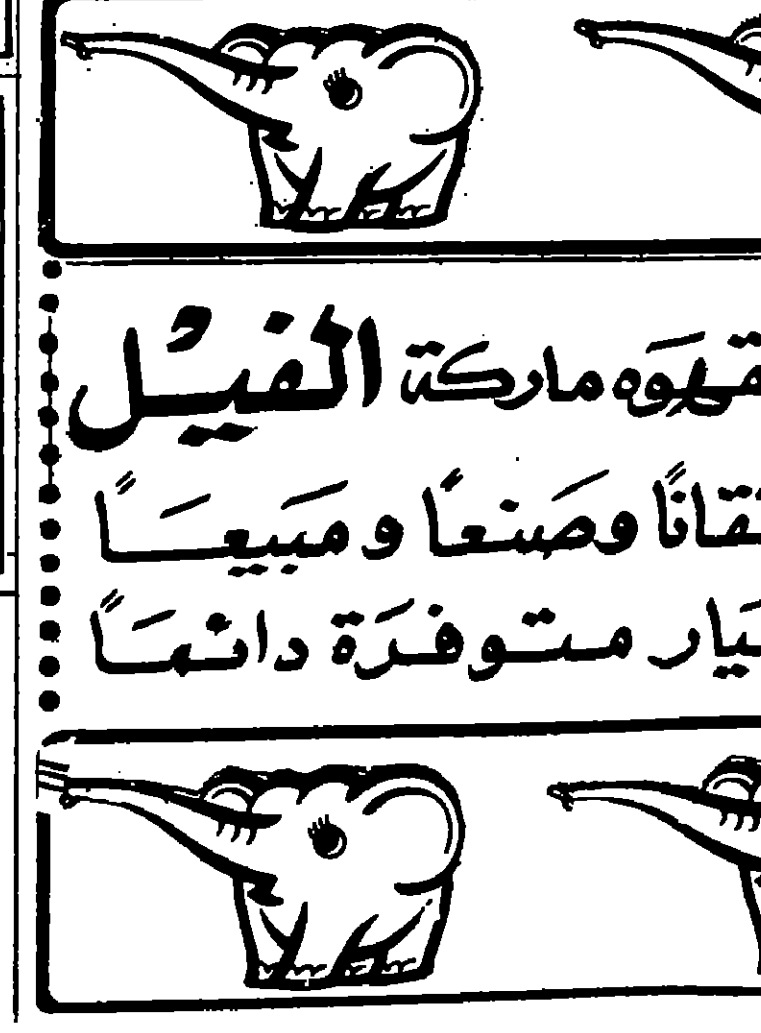 قهوه ماركة الفيل
وصنعاً ومبيعاً
متوفرة دائماً